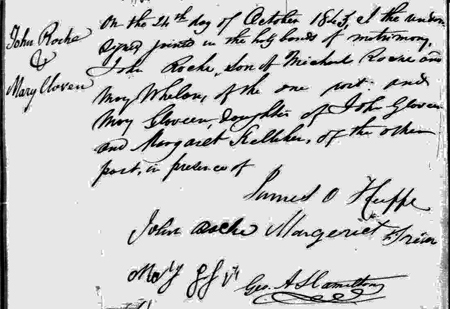 John Roche
&
Mary Cloven
On the 24th day of October 1843, I the under
signed joined in the holy bonds of matrimony,
John Roche, Son of Michael Roche and
Mary Whelan, of the one part: and
Mary Cloveen, Daughter of John Cloveen
and Margaret Kelliher, of the other
part, in presence of
James O
John Roche Margeriet
Mary
Geo. A. Hamilton